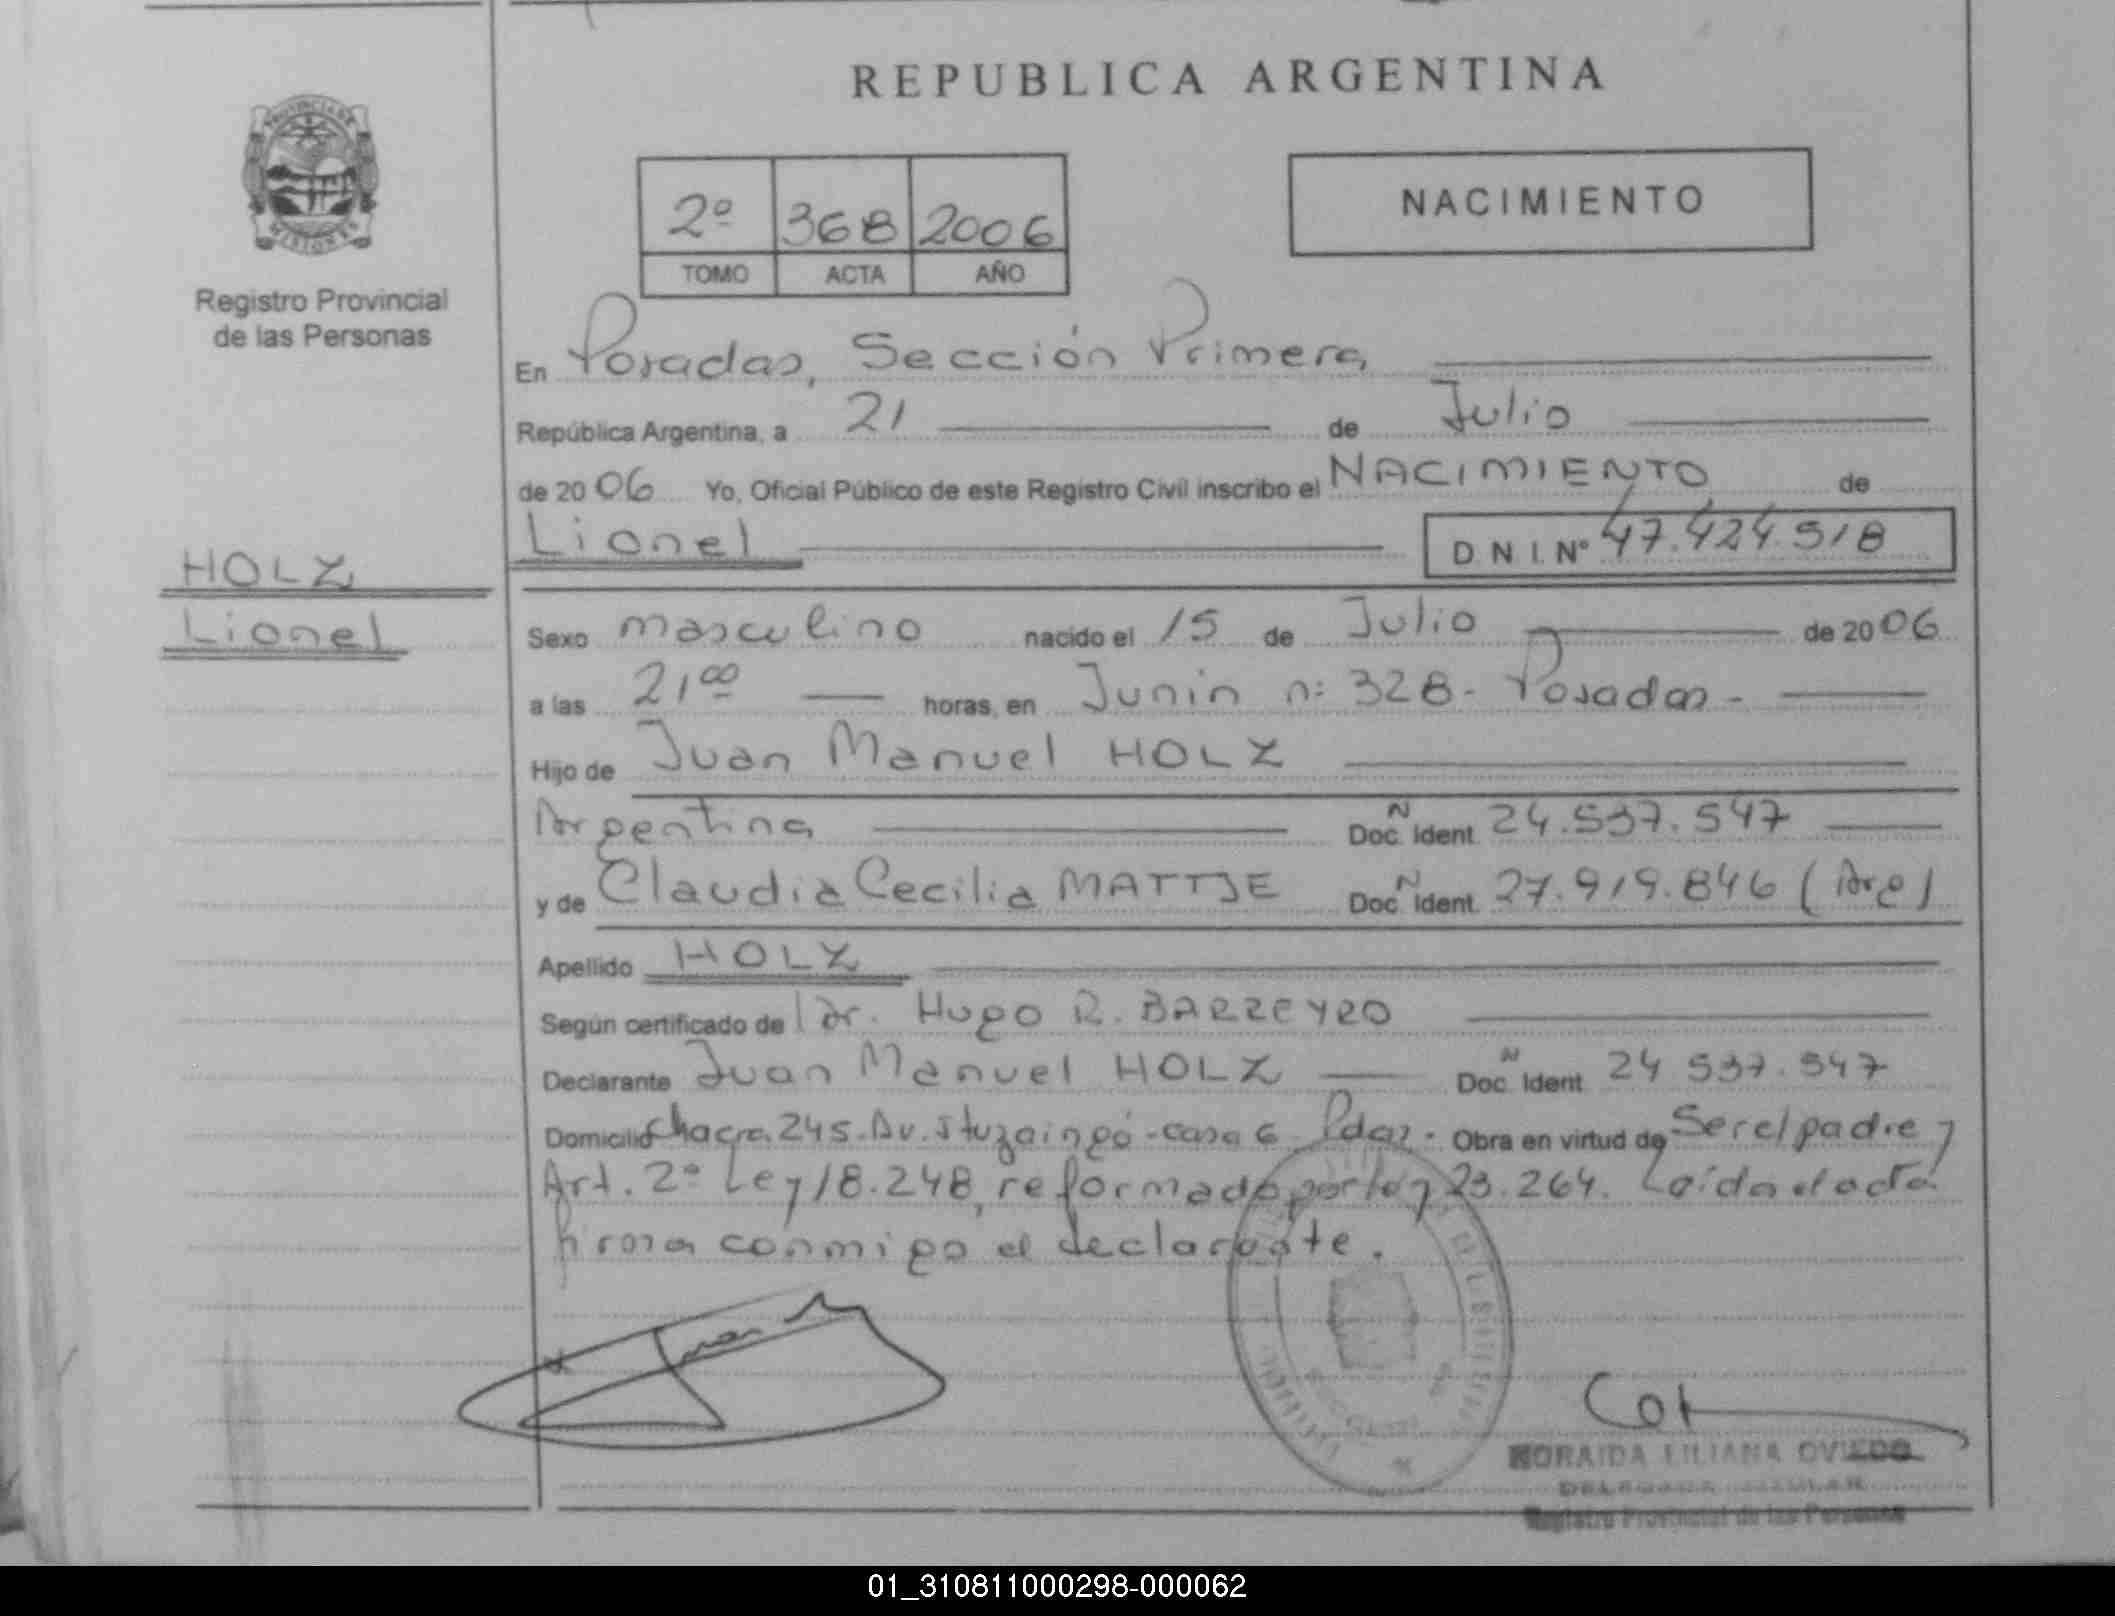 REPUBLICA ARGENTINA
PROVINCIA DE
MISIONES
Registro Provincial
de las Personas
2º 368 2006
TOMO ACTA AÑO
NACIMIENTO
En Posadas, Sección Primera
República Argentina, a 21 de Julio
de 2006 Yo, Oficial Público de este Registro Civil inscribo el NACIMIENTO de
Lionel D N I. Nº 47.424.518
HOLZ
Lionel
Sexo masculino nacido el 15 de Julio de 2006
a las 21 00 horas, en Junin nº 328 - Posadas -
Hijo de Juan Manuel HOLZ
Argentina Doc. Ident. 24.537.547
y de Claudia Cecilia MATTJE Doc. Ident. 27.919.846 (Arg)
Apellido HOLZ
Según certificado de Dr. Hugo R. BARREYRO
Declarante Juan Manuel HOLZ Doc. Ident. 24 537.547
Domicilio Chacra 245. Av. Ituzaingó - casa 6 Pdas. Obra en virtud de Ser el padre y
Art. 2º Ley 18.248, reformado por ley 23.264. Leída el acta
firma conmigo el declarante.
NORAIDA LILIANA OVIEDO
DELEGADA TITULAR
Registro Provincial de las Personas
01_310811000298-000062